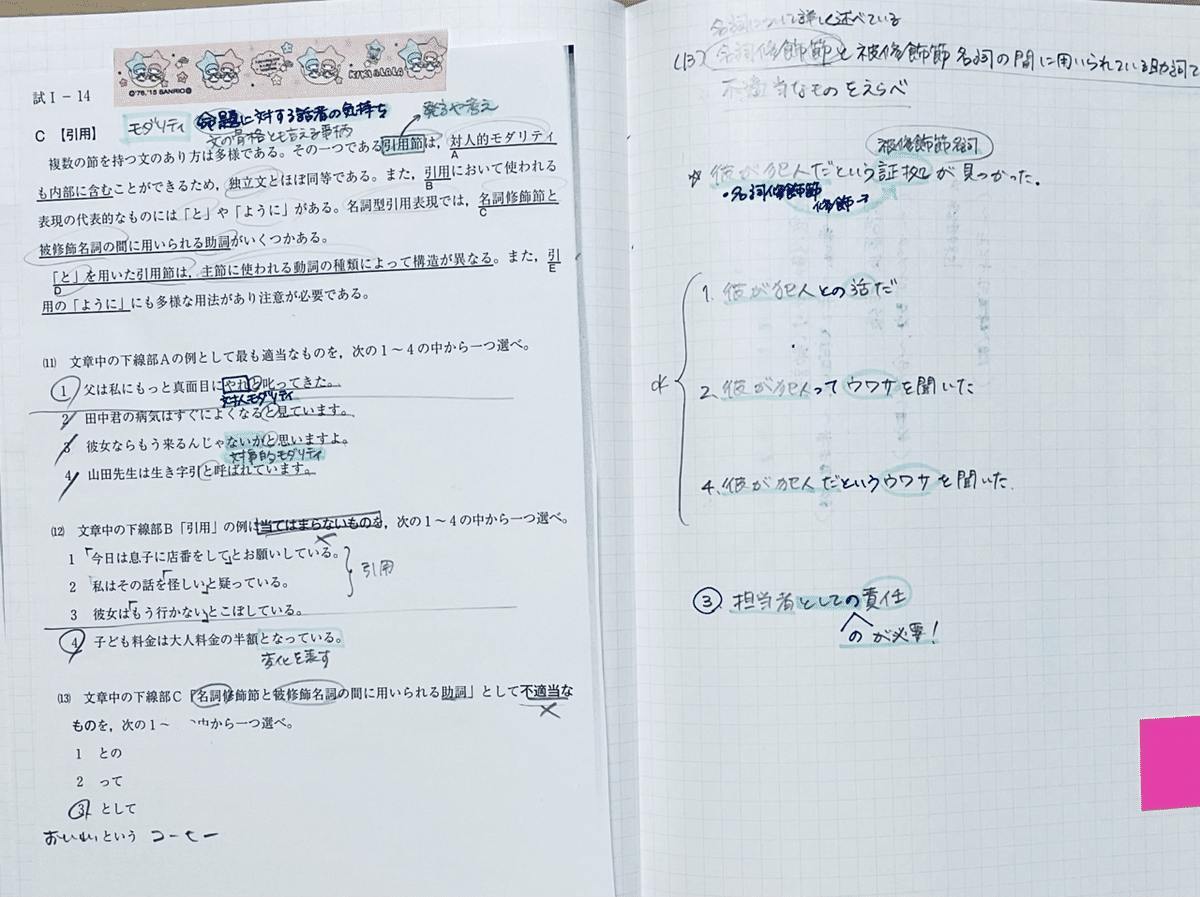 KIKI&LALA
©'76,'15 SANRIO
試Ⅰ－14
C 【引用】
モダリティ
命題に対する話者の気持ち
文の骨格とも言える事柄
発言や考え
複数の節を持つ文のあり方は多様である。その一つである引用節は，対人的モダリティ
A
も内部に含むことができるため，独立文とほぼ同等である。また，引用において使われる
B
表現の代表的なものには「と」や「ように」がある。名詞型引用表現では，名詞修飾節と
C
被修飾名詞の間に用いられる助詞がいくつかある。
「と」を用いた引用節は，主節に使われる動詞の種類によって構造が異なる。また，引
D E
用の「ように」にも多様な用法があり注意が必要である。
⑾ 文章中の下線部Aの例として最も適当なものを，次の1～4の中から一つ選べ。
1 父は私にもっと真面目にやれと叱ってきた。
対人モダリティ
2 田中君の病気はすぐによくなると見ています。
3 彼女ならもう来るんじゃないかと思いますよ。
対事的モダリティ
4 山田先生は生き字引と呼ばれています。
⑿ 文章中の下線部B「引用」の例に当てはまらないものを，次の1～4の中から一つ選べ。
1 「今日は息子に店番をして」とお願いしている。
2 私はその話を「怪しい」と疑っている。
引用
3 彼女は「もう行かない」とこぼしている。
4 子ども料金は大人料金の半額となっている。
変化を表す
⒀ 文章中の下線部C「名詞修飾節と被修飾名詞の間に用いられる助詞」として不適当な
ものを，次の1～ 中から一つ選べ。
1 との
2 って
3 として
おいしいという コーヒー
名詞について詳しく述べている
(13) 名詞修飾節と被修飾節名詞の間に用いられている助詞で
不適当なものをえらべ
被修飾節名詞
☆ 彼が犯人だという証拠が見つかった。
・名詞修飾節
修飾→
ok
1. 彼が犯人との話だ
2. 彼が犯人ってウワサを聞いた
4. 彼が犯人だというウワサを聞いた.
③ 担当者としての責任
の が必要！